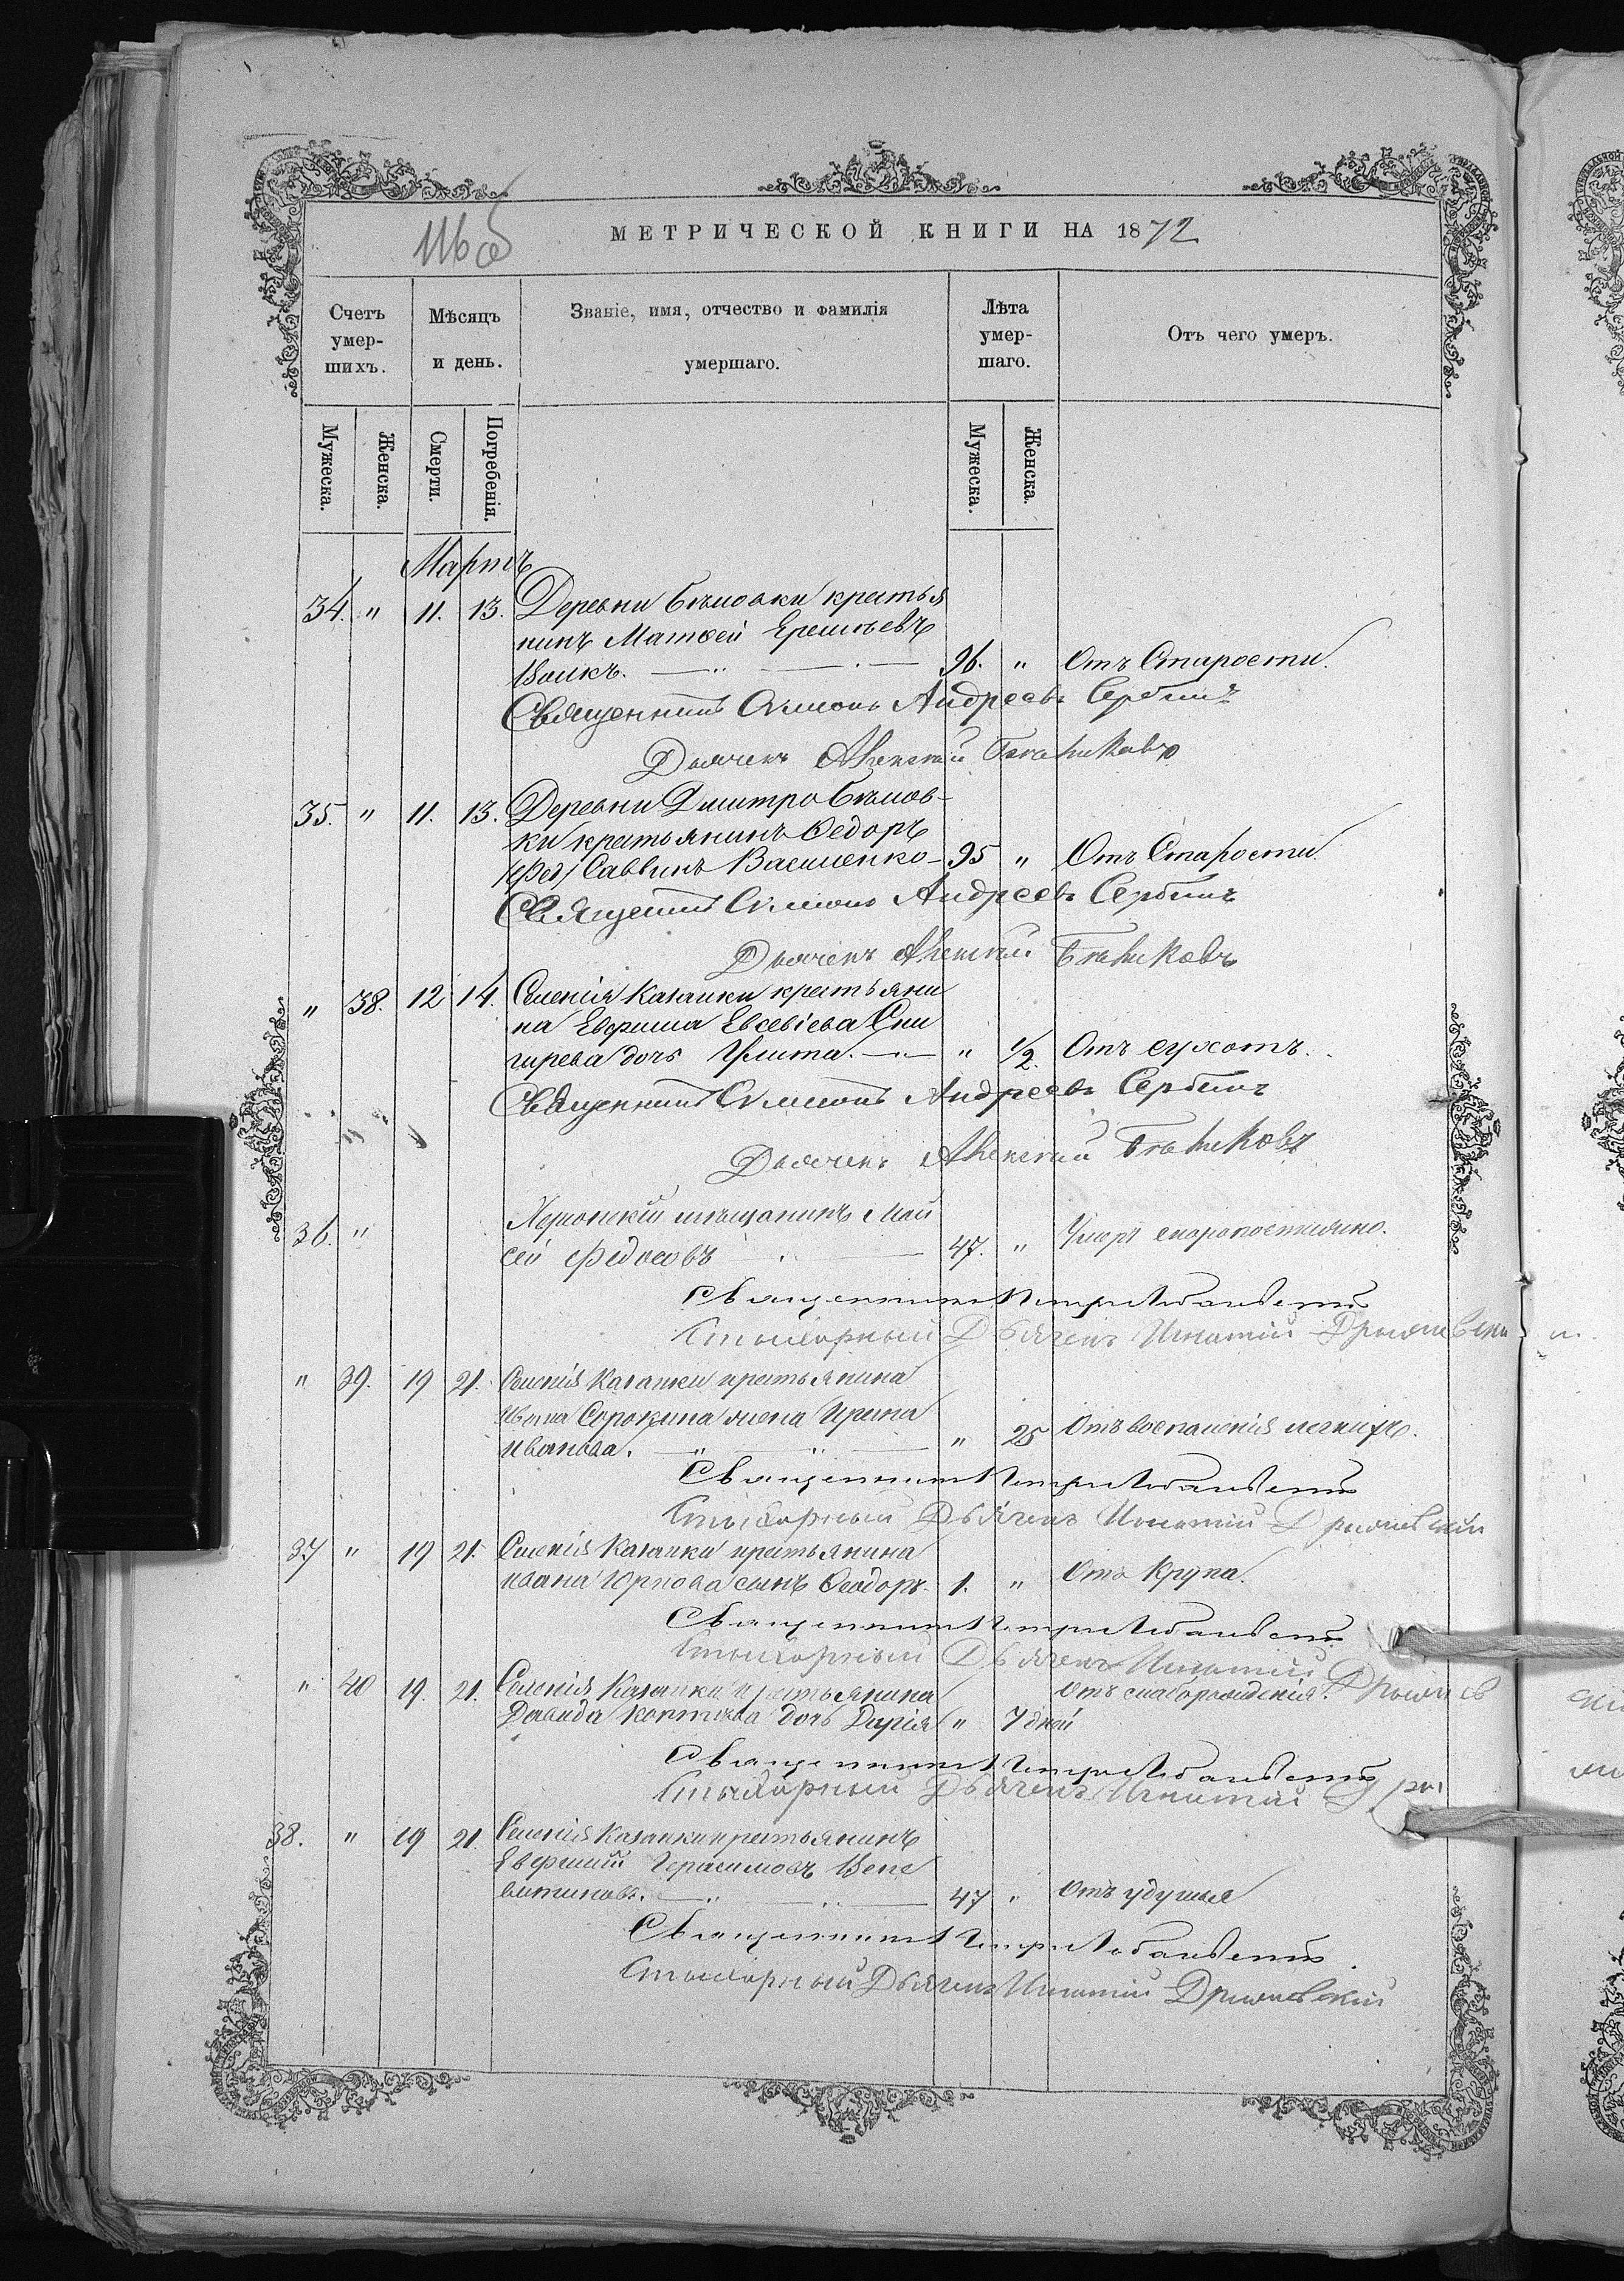 МЕТРИЧЕСКОЙ КНИГИ НА 1872
Счетъ умер-шихъ.
Мѣсяцъ и день.
Званіе, имя, отчество и фамилія умершаго.
Лѣта умер-шаго.
Отъ чего умеръ.
Мужеска.
Женска.
Смерти.
Погребенія.
Мужеска.
Женска.
Мартъ
34. " 11. 13. Деревни крестья
нинъ Матѳей
96. " Отъ Старости.
Священникъ Симеонъ Андреевъ Сербинъ
Дьячекъ Алексѣй
35. " 11. 13. Деревни Дмитро
ки крестьянинъ Ѳедоръ
Саввинъ Василенко 95 " Отъ Старости.
Священникъ Симеонъ Андреевъ Сербинъ
Дьячекъ Алексѣй
" 38. 12 14. Селенія Казанки крестьяни
на Евфима Евсевіева Сни
гирева дочь Улита. " 1/2. Отъ сухотъ.
Священникъ Симеонъ Андреевъ Сербинъ
Дьячекъ Алексѣй
36. " Херсонскій мѣщанинъ Мои
сей Федосовъ 47. " Умеръ скоропостижно.
Священникъ Петръ
Стихарный Дьячекъ Игнатій
" 39. 19 21. Селенія Казанки крестьянина
Ивана Сорокина жена Ирина
Иванова. " 25 Отъ воспаленія легкихъ.
Священникъ Петръ
Стихарный Дьячекъ Игнатій
37 " 19 21. Селенія Казанки крестьянина
Ивана сынъ Ѳеодоръ. 1. " Отъ Крупа.
Священникъ Петръ
Стихарный Дьячекъ Игнатій
" 40 19. 21. Селенія Казанки крестьянина Отъ слаборожденія.
Давида дочь Дарія " 7 дней
Священникъ Петръ
Стихарный Дьячекъ Игнатій
38. " 19 21 Селенія Казанки крестьянинъ
Евфимій Герасимовъ Вене
витиновъ. 47 " Отъ удушья
Священникъ Петръ
Стихарный Дьячекъ Игнатій